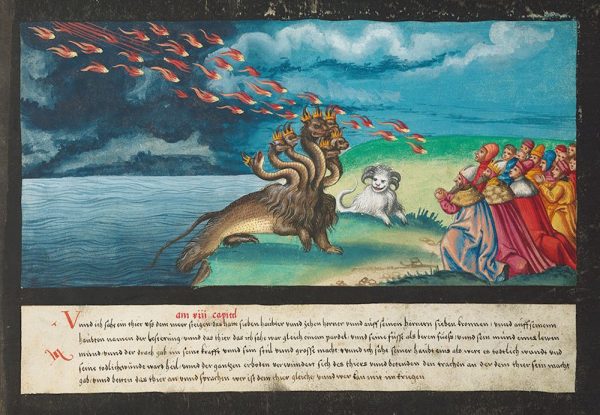 am xiii capitel
Vnnd ich sahe ein thier vss dem meer steigen das hatt siben haübter vnnd zehen horner vnnd auff seinen hornern siben kronnen / vnnd auff seinenn
haübten namen der lesterüng / vnnd das thier das ich sahe war gleich einem pardel / vnnd seine füsß als beren füesß / vnnd sein münd eines lewen
münd / vnnd der drach gab im seine krafft vnnd sein stül vnd grosse macht / vnnd ich sahe seiner haübt eins als wer es todtlich wündt vnd
seine todlichewünde ward heil / vnnd der gantzen erboten verwündert sich des thiers vnnd bettenden den trachen an der dem thier sein macht
gab / vnnd betten das thier an vnd sprachen wer ist dem thier gleiche vnnd wer kan mit im kriegen